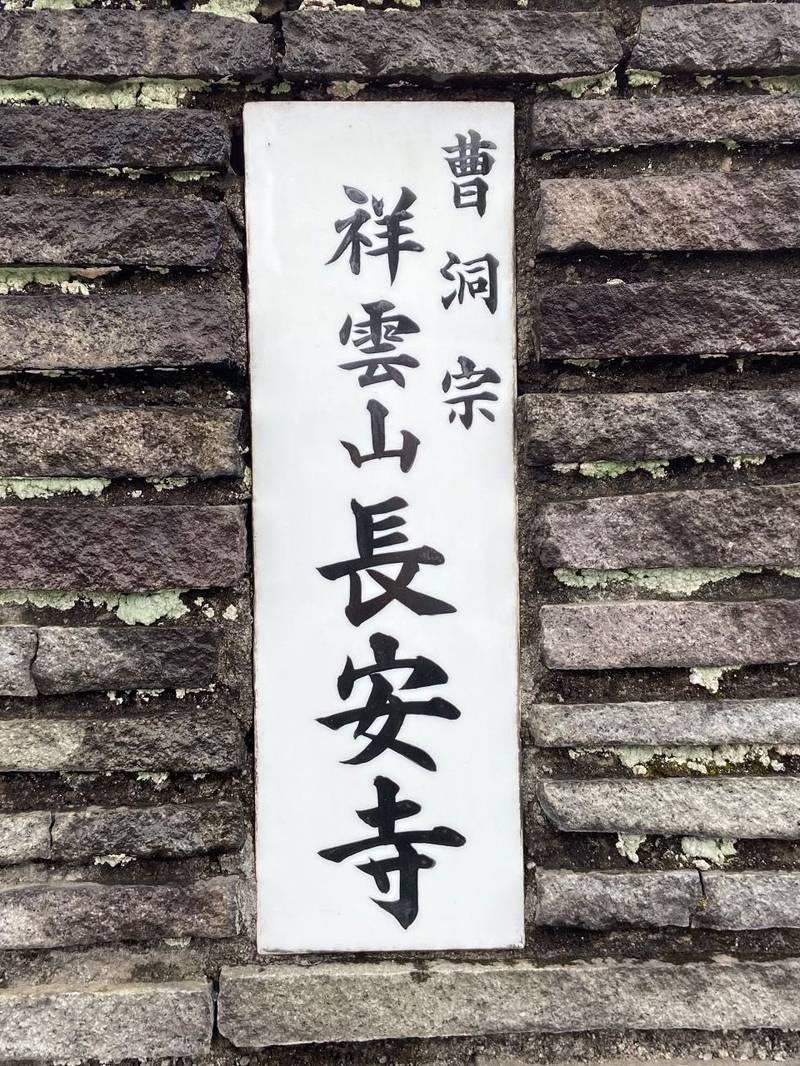 曹洞宗
祥雲山長安寺